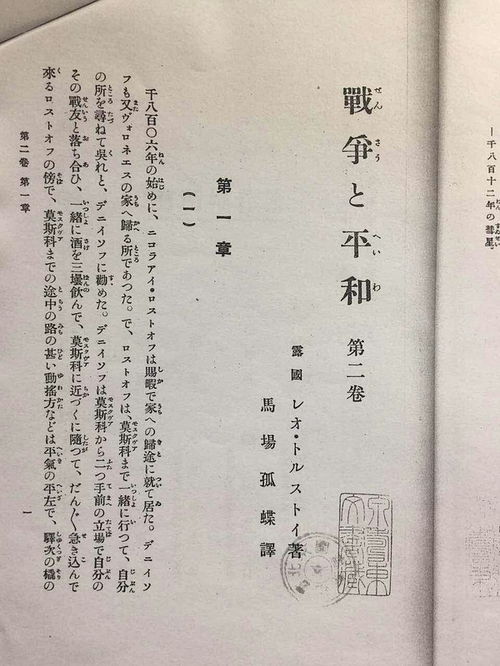 ―千八百十二年の彗星
戰爭と平和 第二卷
露國 レオ・トルストイ著
馬場孤蝶譯
第一章
(一)
千八百〇六年の始めに、ニコライ・ロストオフは賜暇で家への歸途に就て居た。デニイソ
フも又ヴォロネエスの家へ歸る所であつた。で、ロストオフは、莫斯科まで一緒に行つて、自分
の所を尋ねて吳れと、デニイソフに勸めた。デニイソフは莫斯科から二つ手前の立場で自分の
その戰友と落ち合ひ、一緒に酒を三壜飮んで、莫斯科に近づくに隨つて、だん〳〵急き込んで
來るロストオフの傍で、莫斯科までの途中の路の甚い動搖方などは平氣の平左で、驛次の橇の
第二卷 第一章
一